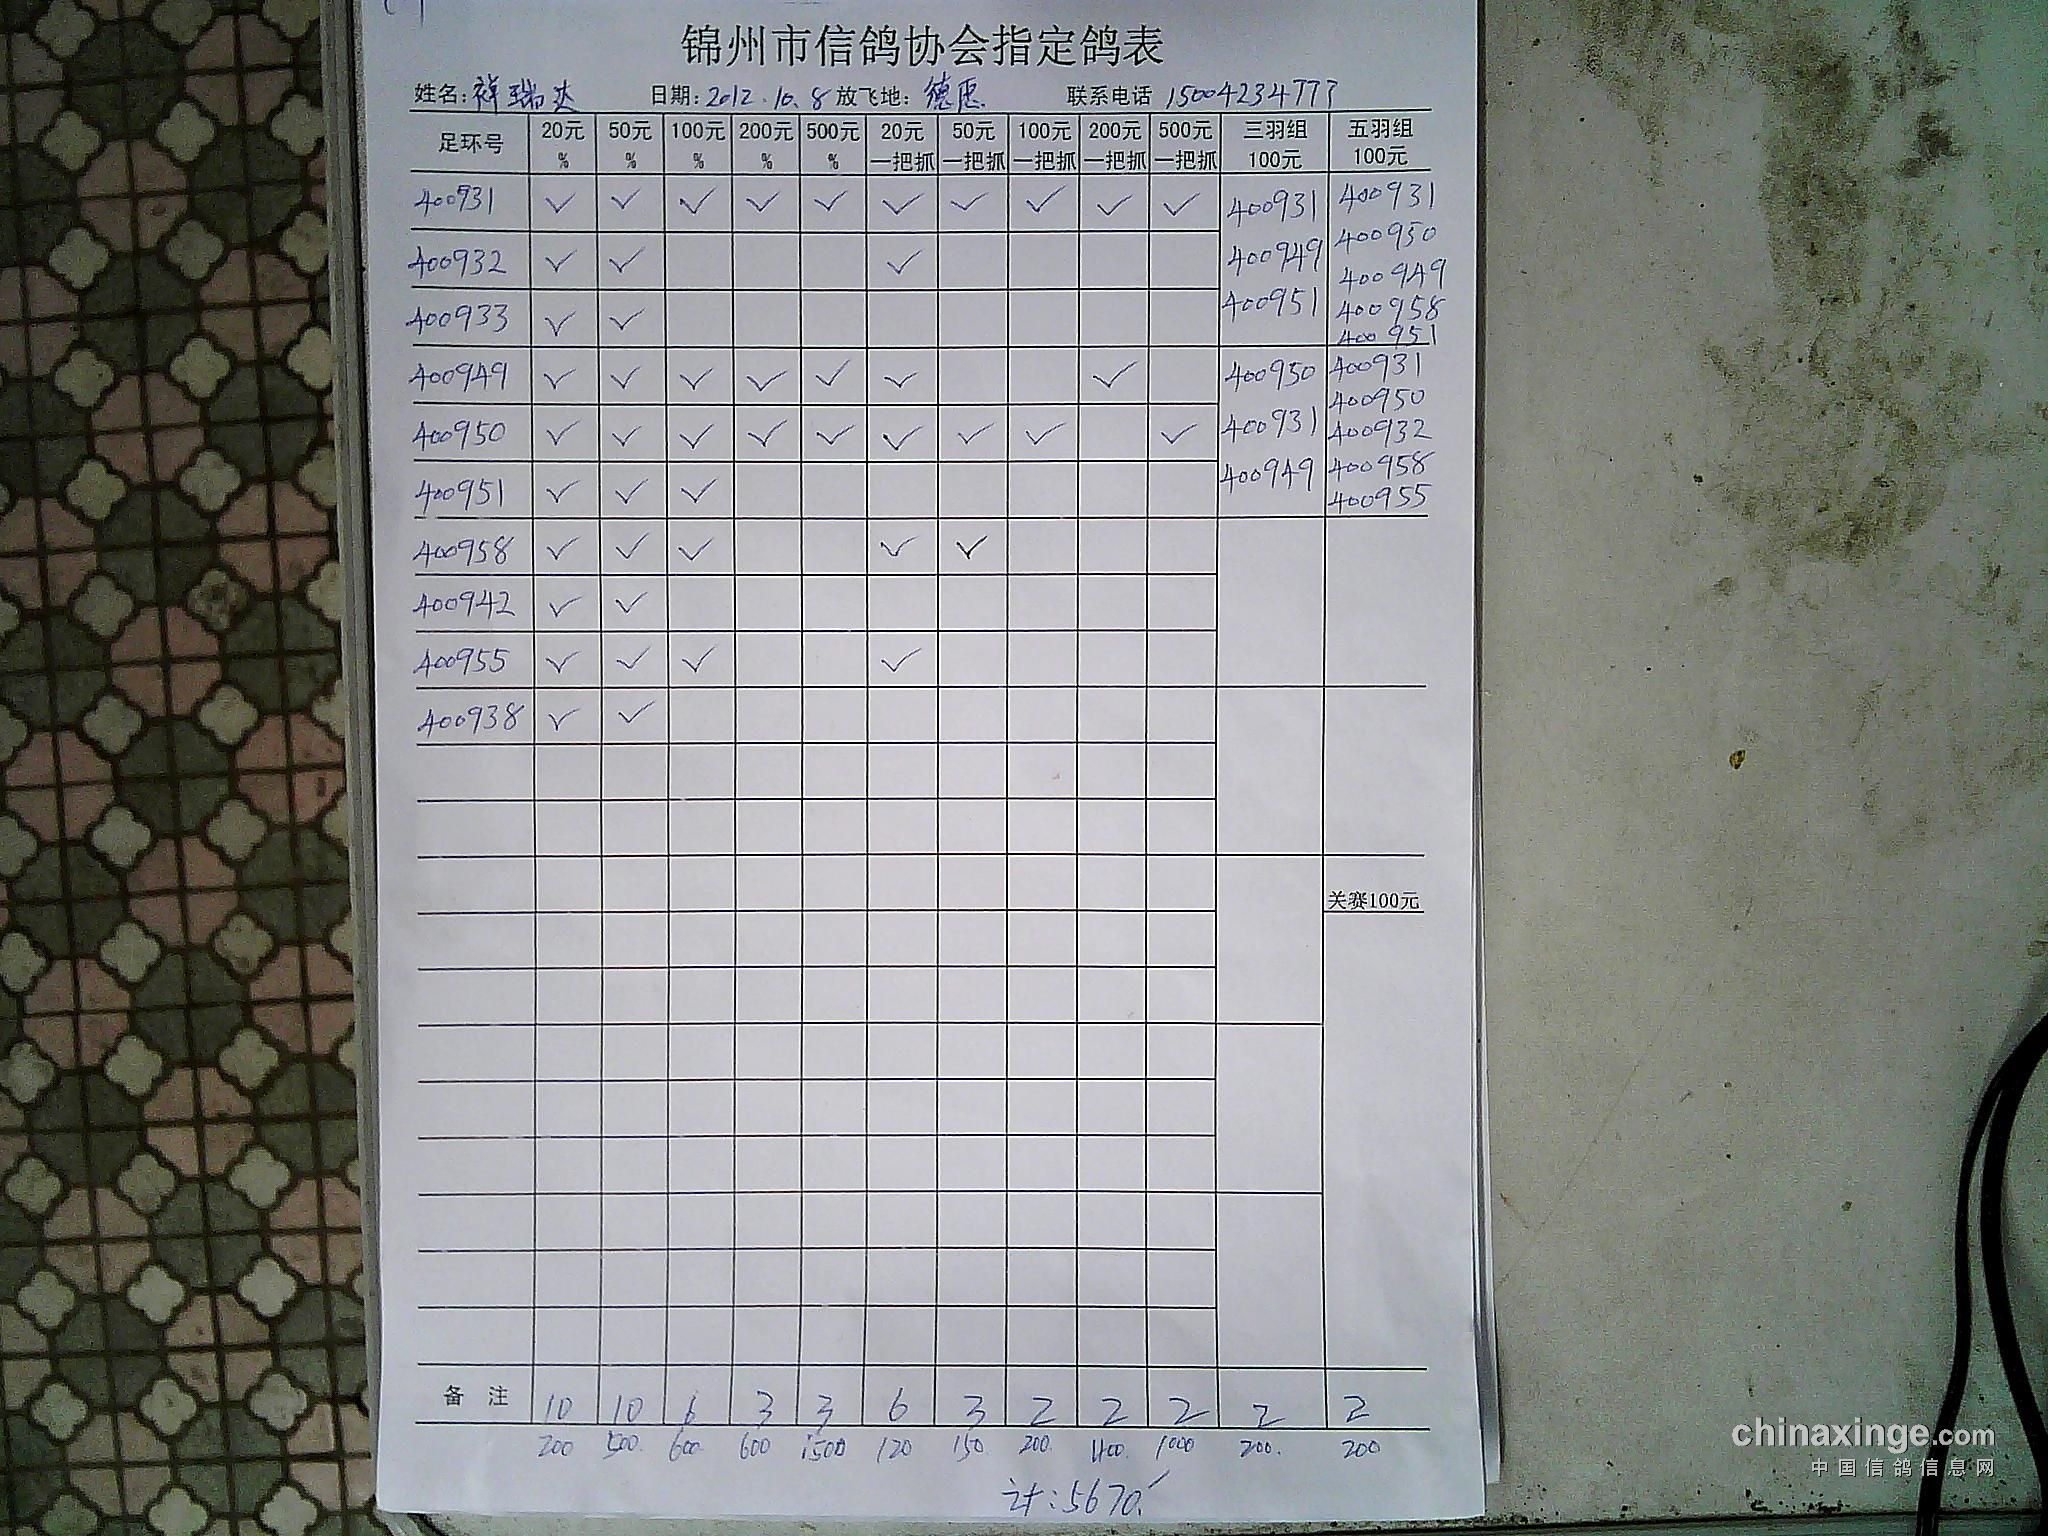 锦州市信鸽协会指定鸽表
姓名:祥瑞达 日期:2012.10.8 放飞地:德惠 联系电话 15004234777
足环号 20元% 50元% 100元% 200元% 500元% 20元一把抓 50元一把抓 100元一把抓 200元一把抓 500元一把抓 三羽组100元 五羽组100元
400931 ✓ ✓ ✓ ✓ ✓ ✓ ✓ ✓ ✓ ✓
400932 ✓ ✓ ✓
400933 ✓ ✓
400949 ✓ ✓ ✓ ✓ ✓ ✓ ✓
400950 ✓ ✓ ✓ ✓ ✓ ✓ ✓ ✓ ✓
400951 ✓ ✓ ✓
400958 ✓ ✓ ✓ ✓ ✓
400942 ✓ ✓
400955 ✓ ✓ ✓ ✓
400938 ✓ ✓
400931
400949
400951
400950
400931
400949
400931
400950
400949
400958
400951
400931
400950
400932
400958
400955
关赛100元
备 注 10 10 6 3 3 6 3 2 2 2 2 2
200 500. 600 600 1500 120 150. 200. 400. 1000 200. 200
计:5670.
chinaxinge.com
中国信鸽信息网